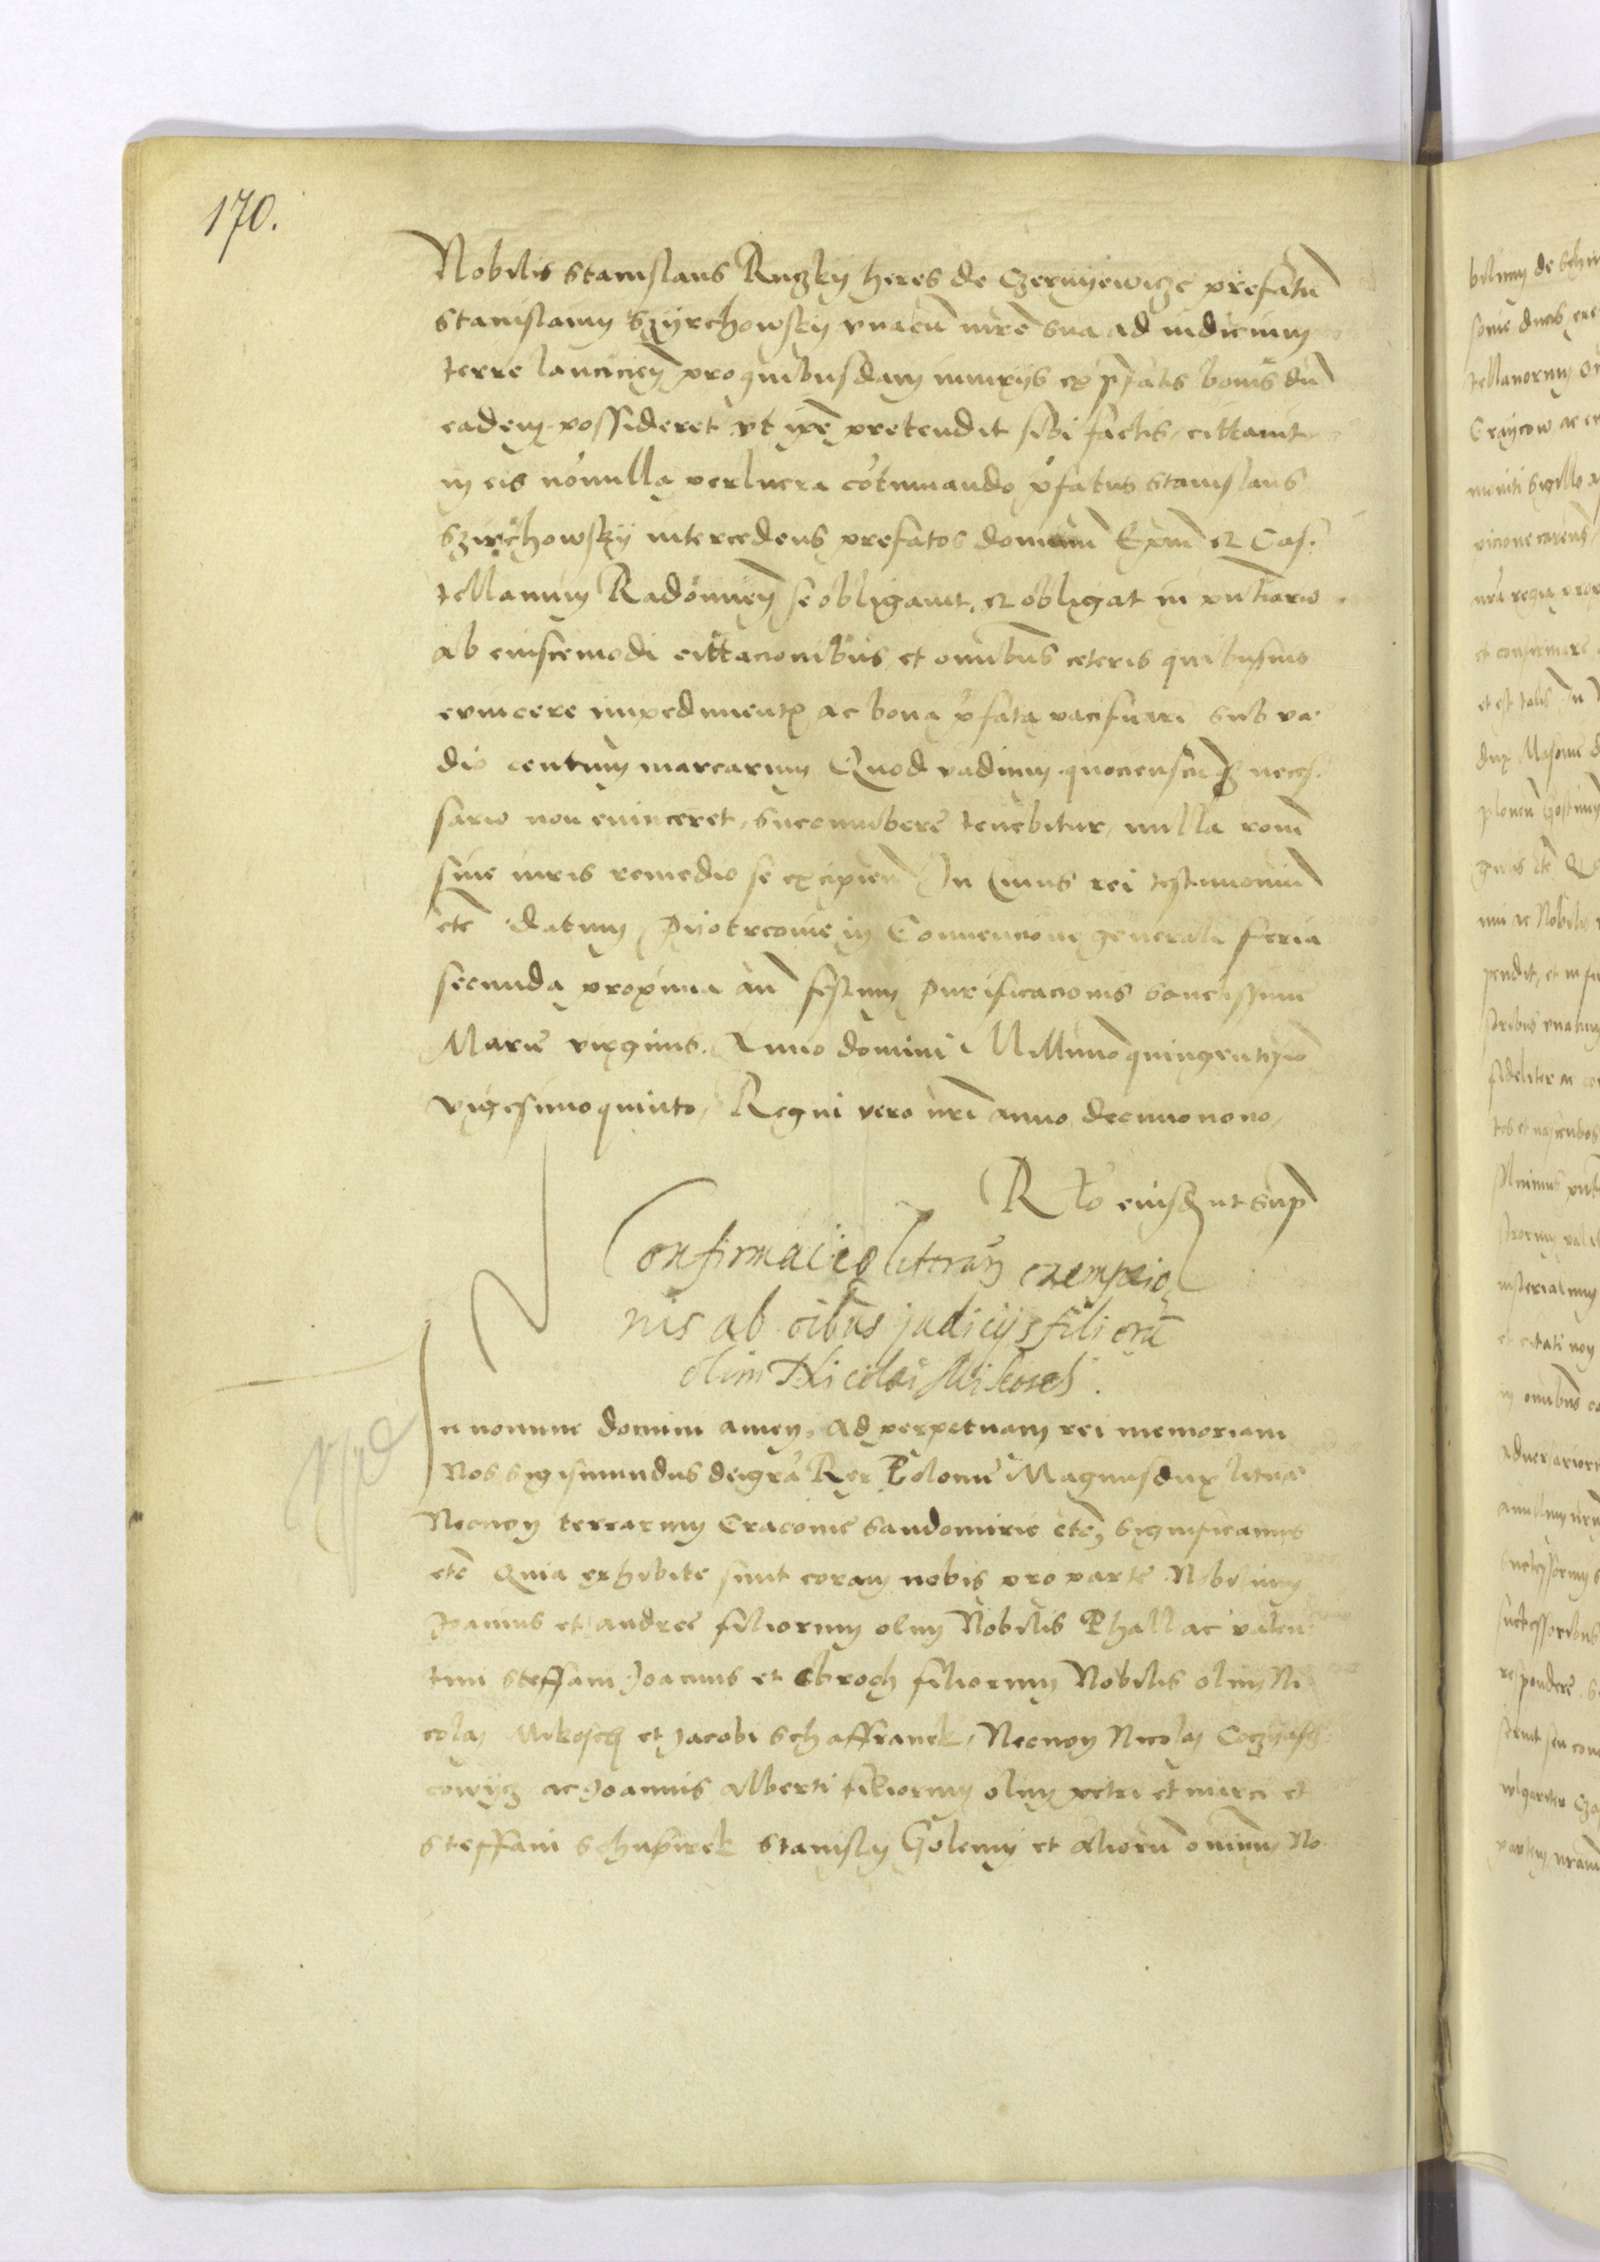 170.
Nobilis Stanislaus Ruczky heres de Czernyewicze prefatu
Stanislaum Szyrchowsky vnacu mre sua ad iudicium
terre lancicien pro quibusdam iniurys ex ppatis bonis du
eadem possideret vt ipe pretendit sibi factis, cittavit
in eis nonulla perlucra cotinuando pfatus Stanislaus
Szirchowsky intercedens prefatos dominum et Cas
tellanum se obligavit, et obligat in
ab eiuscemodi cittacionibus et omibus ceteris quibusuis
evincere impedimentis ac bona pfata pacifuari sub va
dio centum marcarum Quod vadium quociensc neces
sario non evinceret, succumbere tenebitur, nulla
siue iuris remedio se excipien In Cuius rei testimoniu
etc datum Pyotrcouie in Convencione generali feria
secunda proxima an festum purificacionis Sanctissime
Marie virginis. Anno domini Millimo quingentesio
vigesimoquinto, Regni vero nri anno decimonono,
R to eiusd ut sup
Confirmacio literarum exempcio
nis ab oibus judicijs filioru
olim Nicolai Mikosch.
In nomine domini amen, ad perpetuam rei memoriam
Nos Sigismundus dei gra Rex Polonie Magnus dux lituae
Necnon terrarum Cracouie Sandomirie etc, Significamus
etc Quia exhibite sunt coram nobis pro parte Nobilium
Joannis et andree filiorum olim Nobilis Phall ac valen
tini Steffani Joannis et Abroch filiorum Nobilis olim Ni
colaj Mikosch et Jacobi Schaffranek, Necnon Nicolaj Coczyasch
cowycz ac Joannis Alberti filiorum olim petri et mirci et
Steffani Schupirek Stanislaj Golemy et aliorum omnium No